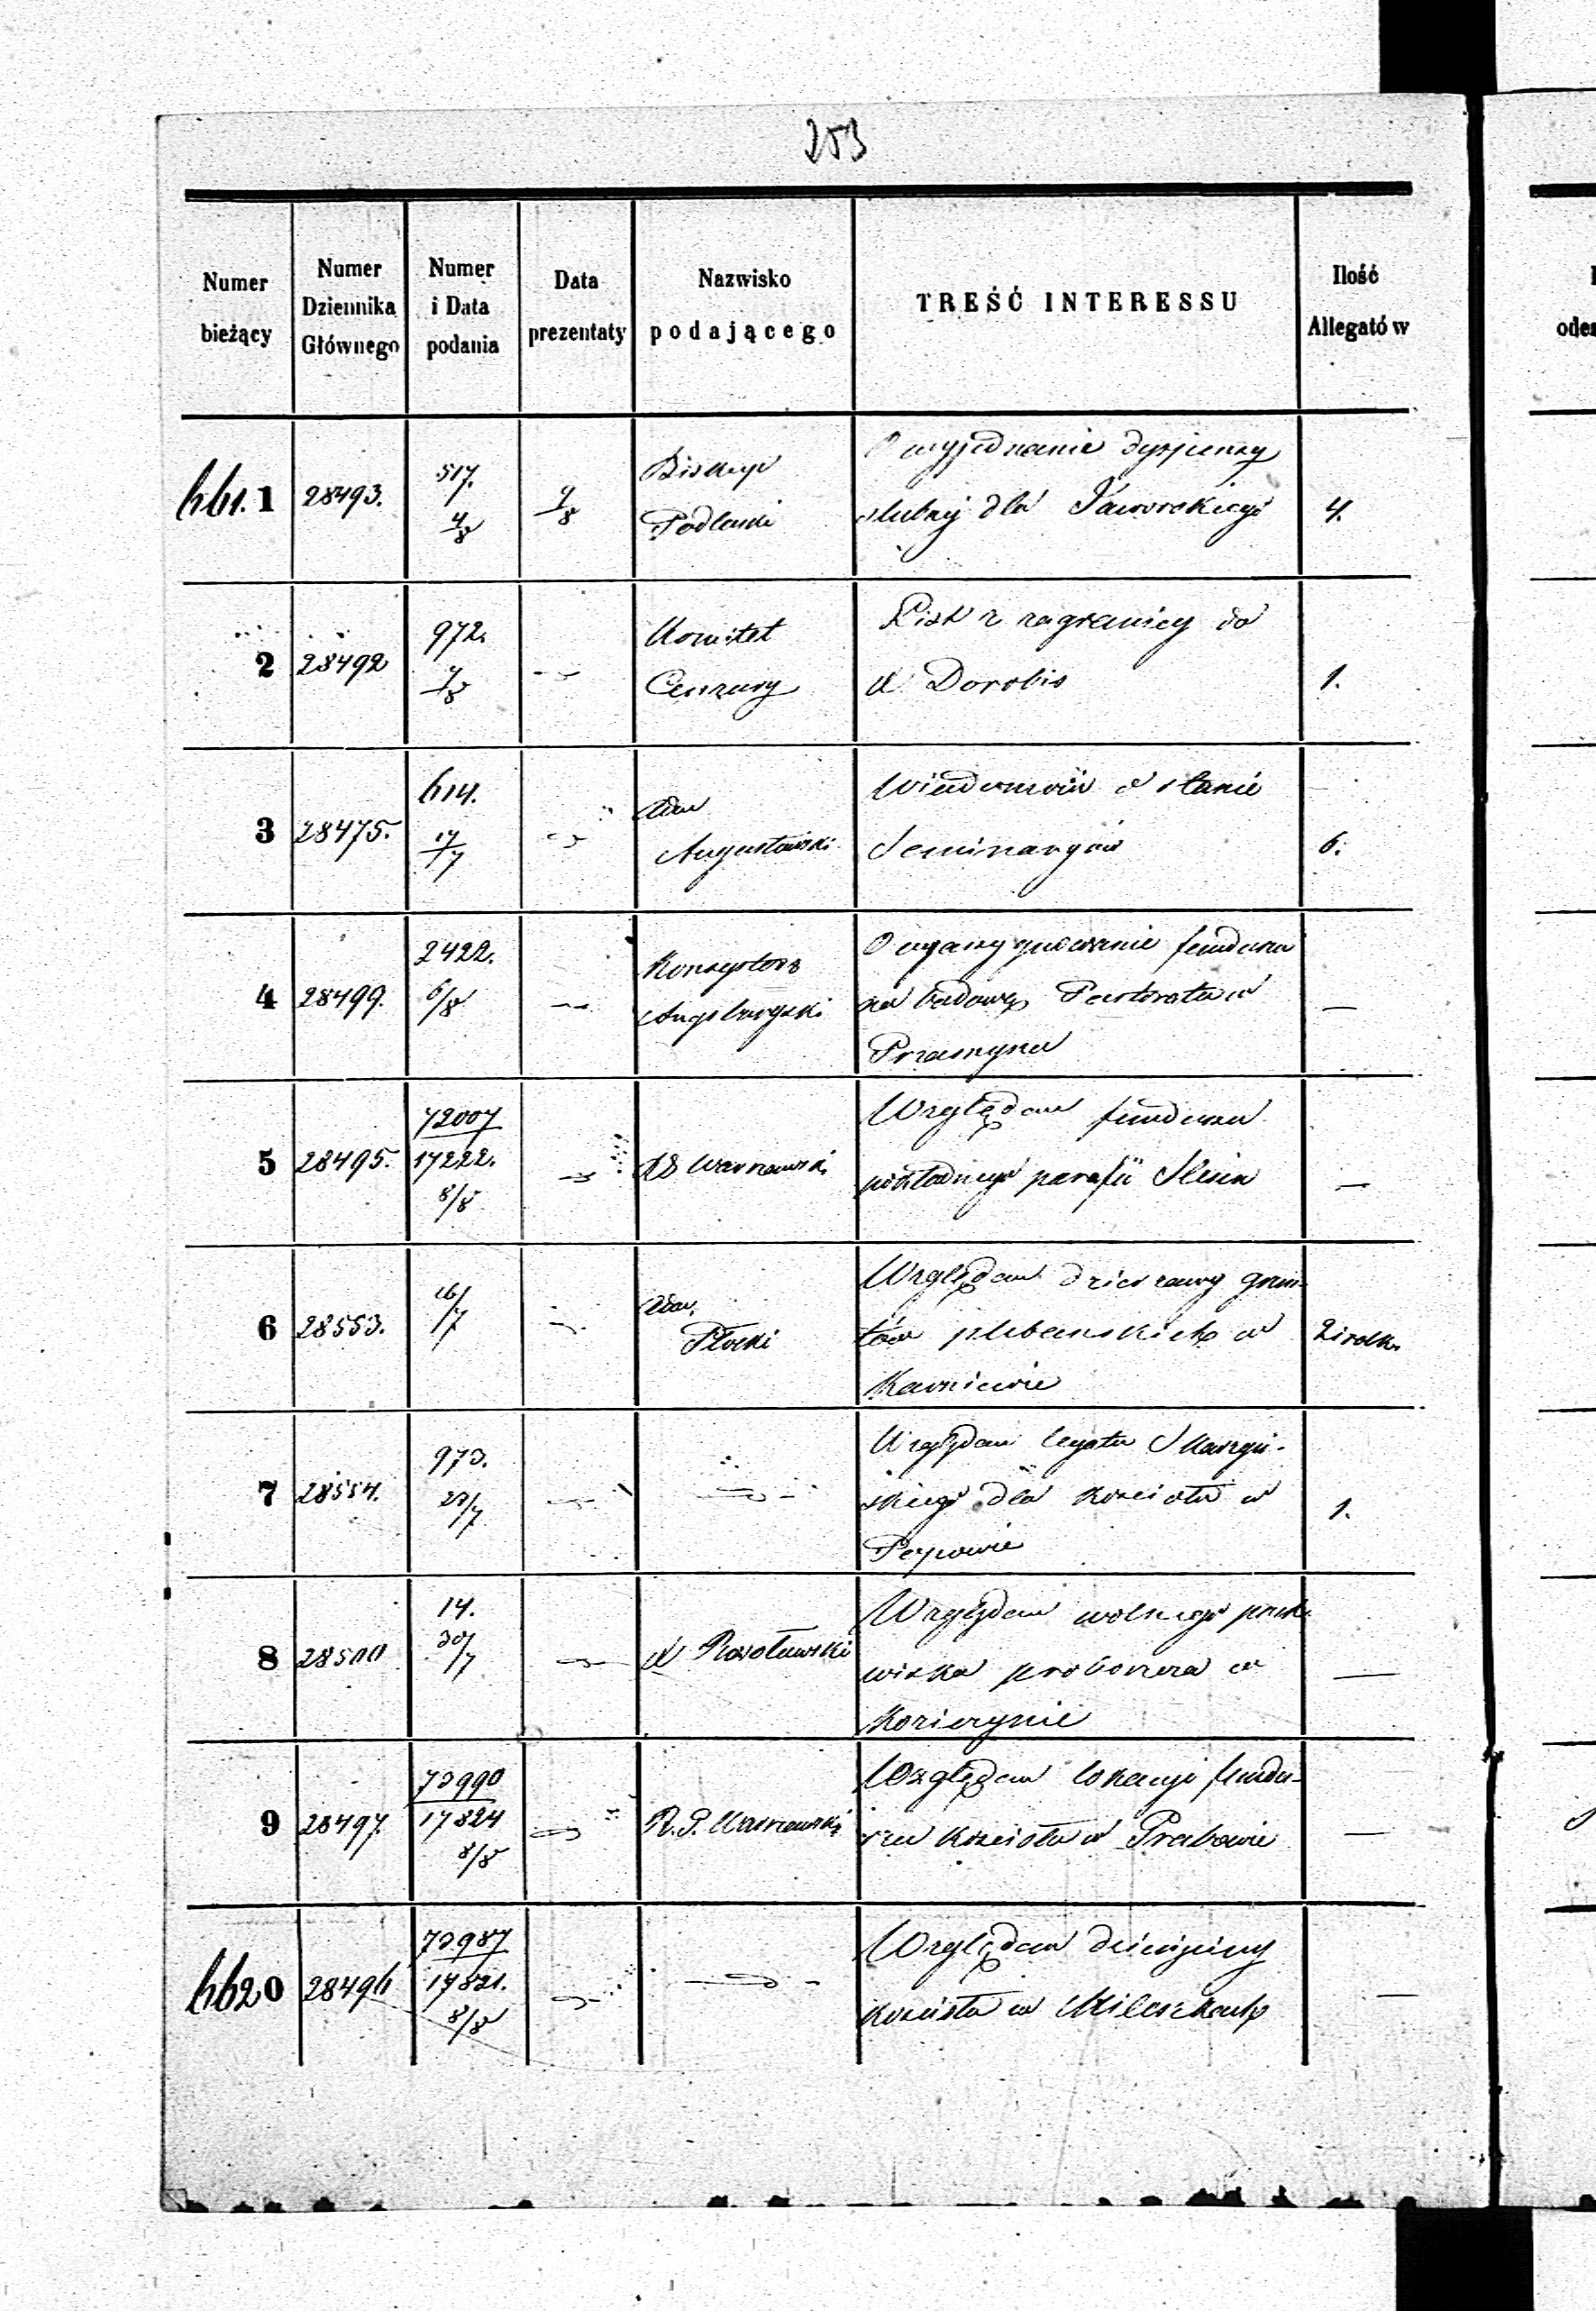 253
Numer bieżący
Numer Dziennika Głównego
Numer i Data podania
Data prezentaty
Nazwisko podającego
TREŚĆ INTERESSU
Ilość Allegatów
661.1 28493. 517. 4/8 9/8 Biskup Podlaski
O wyjednanie dyspensy
ślubnej dla Jaworskiego 4.
2 28492 972. 9/8 Komitet Cenzury
List z zagranicy do
X Dorobis 1.
3 28475. 614. 17/7 Adm Augustowski
Wiadomość o stanie
Seminaryów 6.
4 28499. 2422. 6/8 Konsystorz Augsburgski
O wyasygnowanie funduszu
na budowę Pastoratu w —
Przasnyszu
5 28495. 72007 17222. 8/8 Warszawski
Względem funduszu
pokładnego parafii Slesin —
6 28553. 16/7 Adm. Płocki
Względem dzierżawy grun-
tów plebańskich w
Karniewie
7 28554. 973. 23/7
Względem legatu Skarzyń-
skiego dla kościoła w 1.
8 28500 14. 30/7 X Rosołowski
Względem wolnego
proboszcza w —
9 28497. 73990 17824 8/8 R. G. Warszawski
Względem lokacyi fundu-
szu kościoła w Grabowie —
6620 28496 73987 17821. 8/8
Względem dziesięciny
kościoła w —